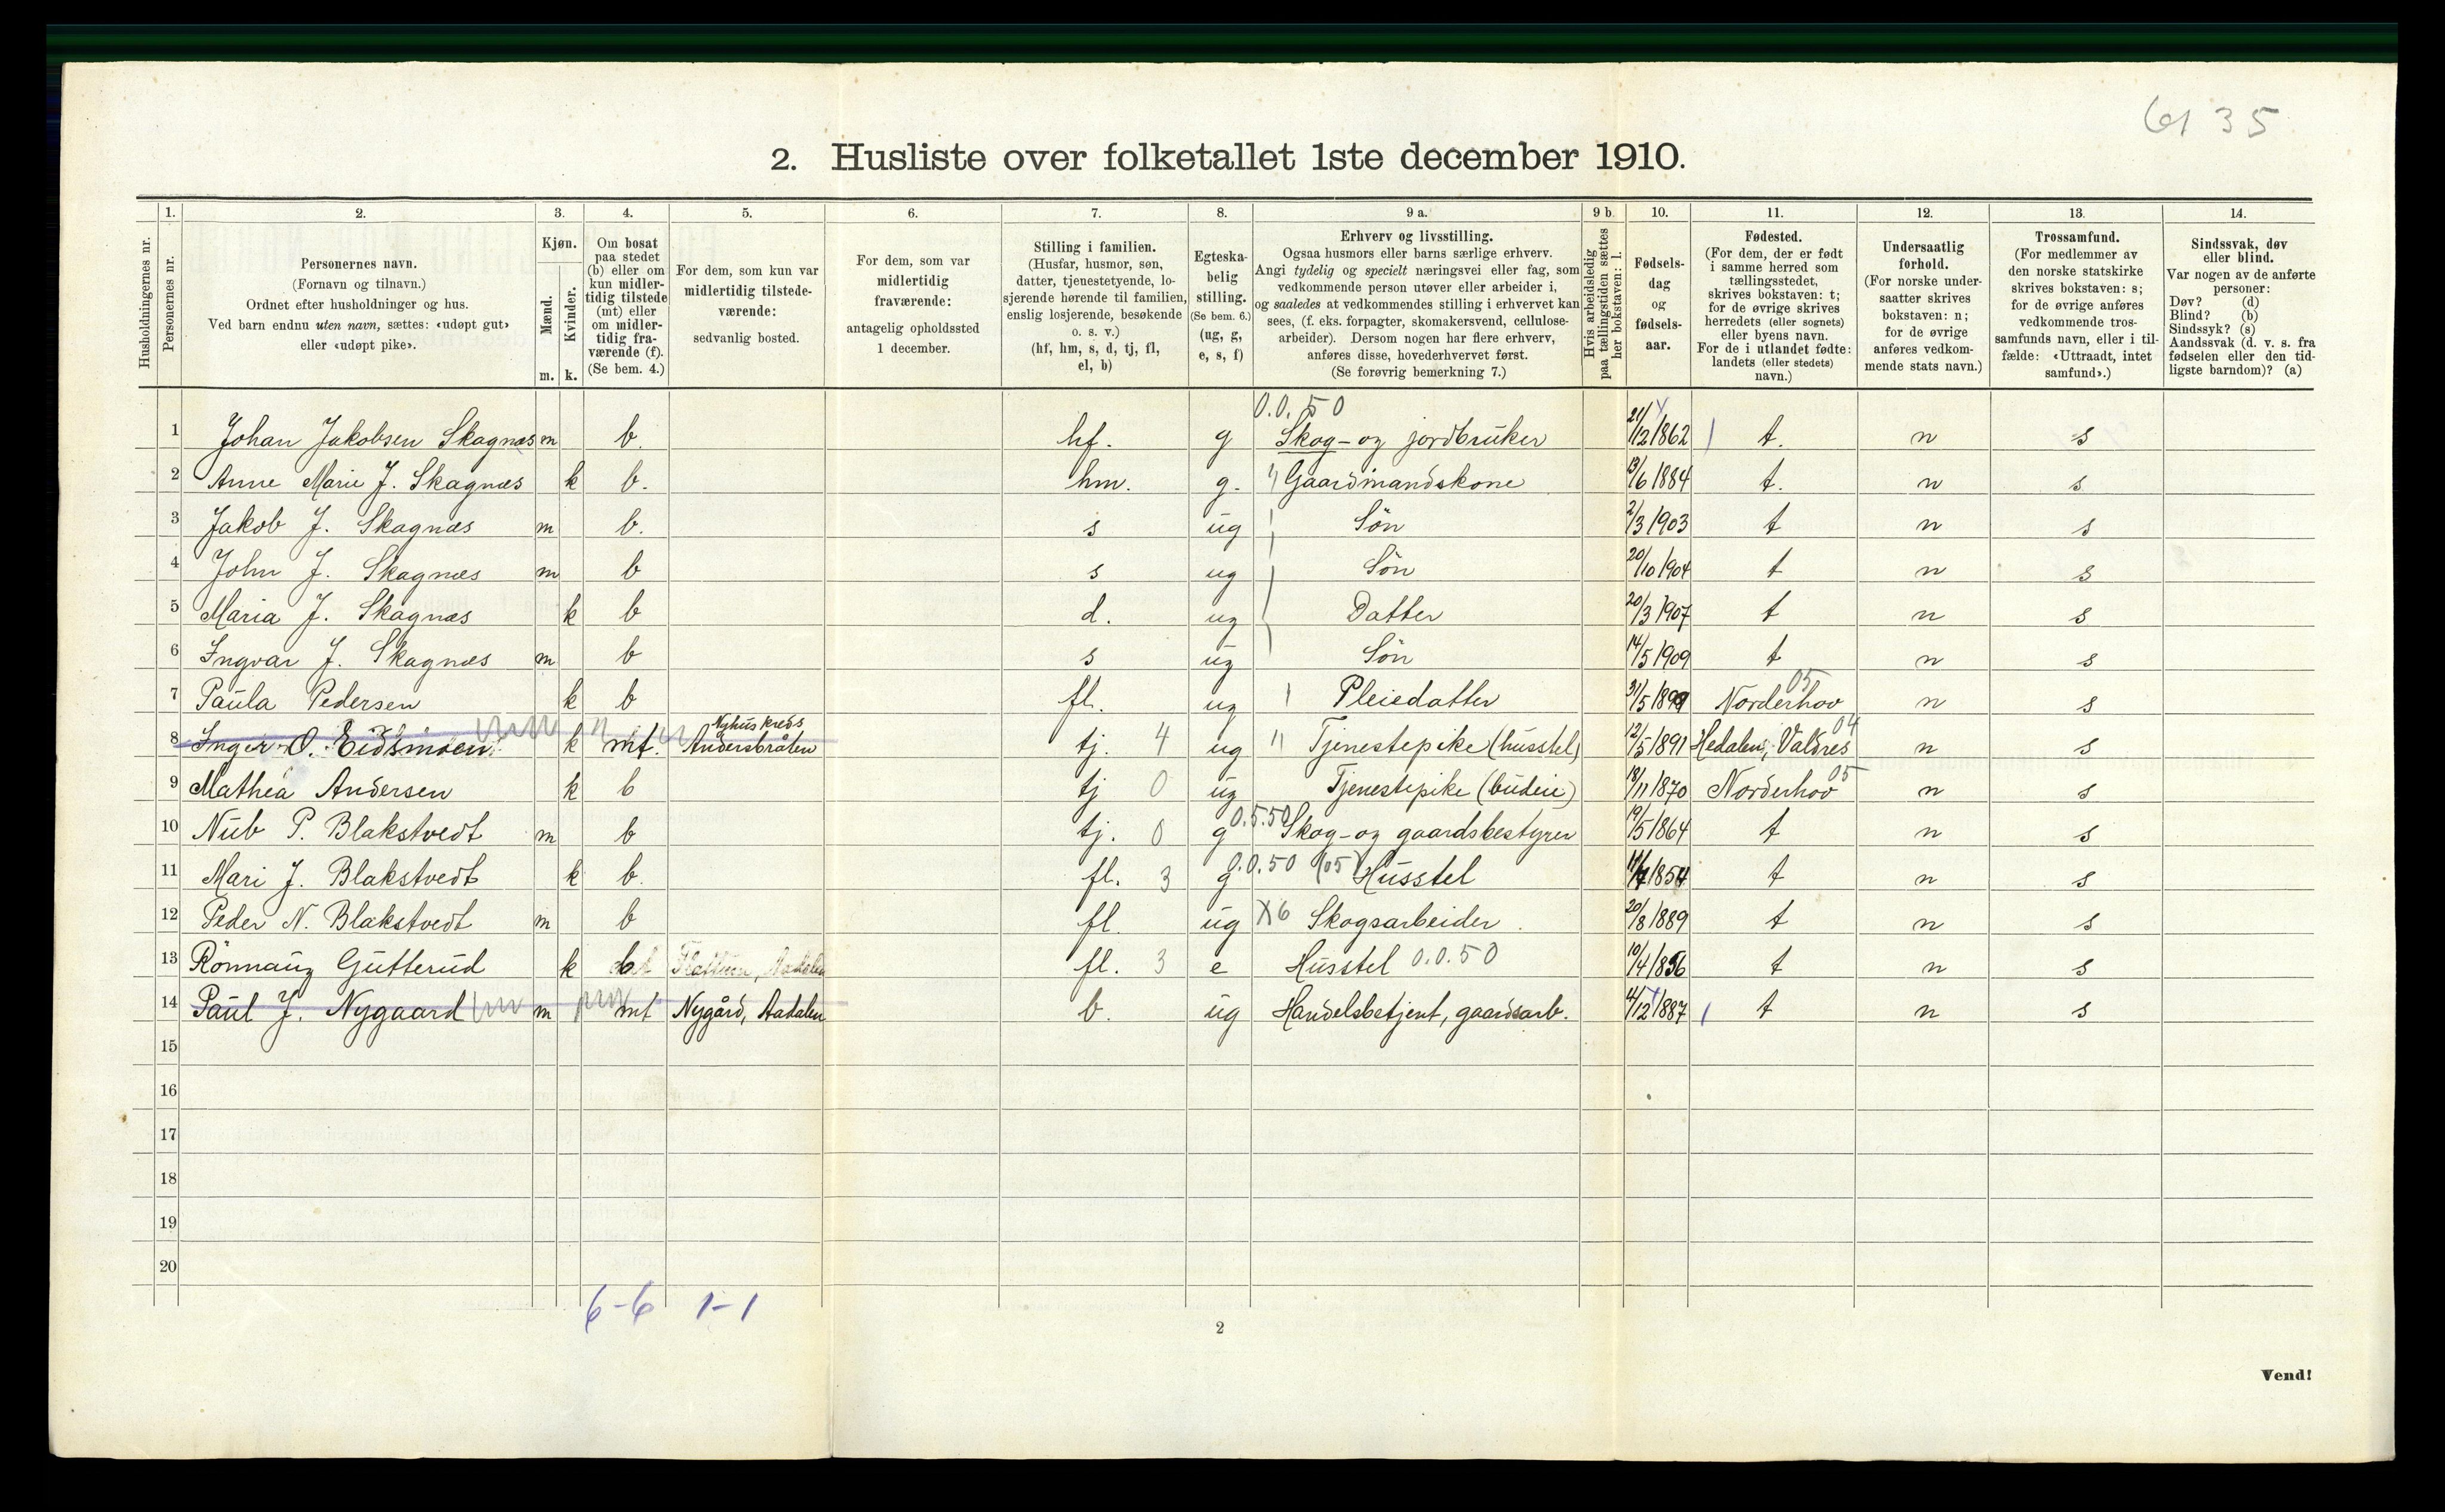 61 35
2. Husliste over folketallet 1ste december 1910.
Husholdningernes nr.
1. Personernes nr.
2. Personernes navn. (Fornavn og tilnavn.) Ordnet efter husholdninger og hus. Ved barn endnu uten navn, sættes: «udøpt gut» eller «udøpt pike».
3. Kjøn. Mænd. m. Kvinder. k.
4. Om bosat paa stedet (b) eller om kun midlertidig tilstede (mt) eller om midlertidig fraværende (f). (Se bem. 4.)
5. For dem, som kun var midlertidig tilstedeværende: sedvanlig bosted.
6. For dem, som var midlertidig fraværende: antagelig opholdssted 1 december.
7. Stilling i familien. (Husfar, husmor, søn, datter, tjenestetyende, losjerende hørende til familien, enslig losjerende, besøkende o. s. v.) (hf, hm, s, d, tj, fl, el, b)
8. Egteskabelig stilling. (Se bem. 6.) (ug, g, e, s, f)
9 a. Erhverv og livsstilling. Ogsaa husmors eller barns særlige erhverv. Angi tydelig og specielt næringsvei eller fag, som vedkommende person utøver eller arbeider i, og saaledes at vedkommendes stilling i erhvervet kan sees, (f. eks. forpagter, skomakersvend, cellulosearbeider). Dersom nogen har flere erhverv, anføres disse, hovederhvervet først. (Se forøvrig bemerkning 7.)
9 b. Hvis arbeidsledig paa tællingstiden sættes her bokstaven: l.
10. Fødselsdag og fødselsaar.
11. Fødested. (For dem, der er født i samme herred som tællingsstedet, skrives bokstaven: t; for de øvrige skrives herredets (eller sognets) eller byens navn. For de i utlandet fødte: landets (eller stedets) navn.)
12. Undersaatlig forhold. (For norske undersaatter skrives bokstaven: n; for de øvrige anføres vedkommende stats navn.)
13. Trossamfund. (For medlemmer av den norske statskirke skrives bokstaven: s; for de øvrige anføres vedkommende trossamfunds navn, eller i tilfælde: «Uttraadt, intet samfund».)
14. Sindssvak, døv eller blind. Var nogen av de anførte personer: Døv? (d) Blind? (b) Sindssyk? (s) Aandssvak (d. v. s. fra fødselen eller den tidligste barndom)? (a)
0.0.50
1 Johan Jakobsen Skagnæs m b. hf. g Skog- og jordbruker 21/12 1862 t. n s
2 Anne Marie J. Skagnæs k b. hm. g. Gaardmandskone 13/6 1884 t. n s
3 Jakob J. Skagnæs m b. s ug Søn 2/3 1903 t n s
4 John J. Skagnæs m b s ug Søn 20/10 1904 t n s
5 Maria J. Skagnæs k b d. ug Datter 20/3 1907 t n s
6 Ingvar J. Skagnæs m b s ug Søn 14/5 1909 t n s
7 Paula Pedersen k b fl. ug Pleiedatter 31/5 1899 Norderhov 05 n s
8 Inger O. Eidsmoen k mt. Nyhus kreds Andersbråten tj. 4 ug Tjenestepike (husstel) 12/5 1891 Hedalen, Valdres 04 n s
9 Mathea Andersen k b tj 0 ug Tjenestepike (budeie) 18/11 1870 Norderhov 05 n s
10 Nub P. Blakstvedt m b tj. 0 g 0.5.50 Skog- og gaardsbestyrer 19/5 1864 t n s
11 Mari J. Blakstvedt k b. fl. 3 g 0.0.50 (05) Husstel 11/7 1854 t n s
12 Peder N. Blakstvedt m b fl. ug X6 Skogsarbeider. 20/8 1889 t n s
13 Rönnaug Gutterud k b Aadalen fl. 3 e Husstel 0.0.50 10/4 1856 t n s
14 Paul J. Nygaard m mt Nygård, Aadalen b. ug Handelsbetjent, gaardsarb. 4/12 1887 t n s
15
16
17
18
19
20
6-6 1-1
2
Vend!